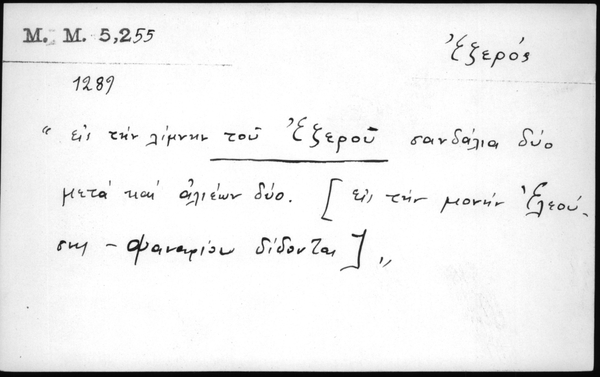 M. M. 5,255
Ἐξερός
1289
“ εἰς τήν λίμνην τοῦ Ἐξεροῦ σανδάλια δύο
μετά καί ἁλιέων δύο. [ εἰς τήν μονήν Ἐλεού-
σης – Φαναρίου δίδονται ] „